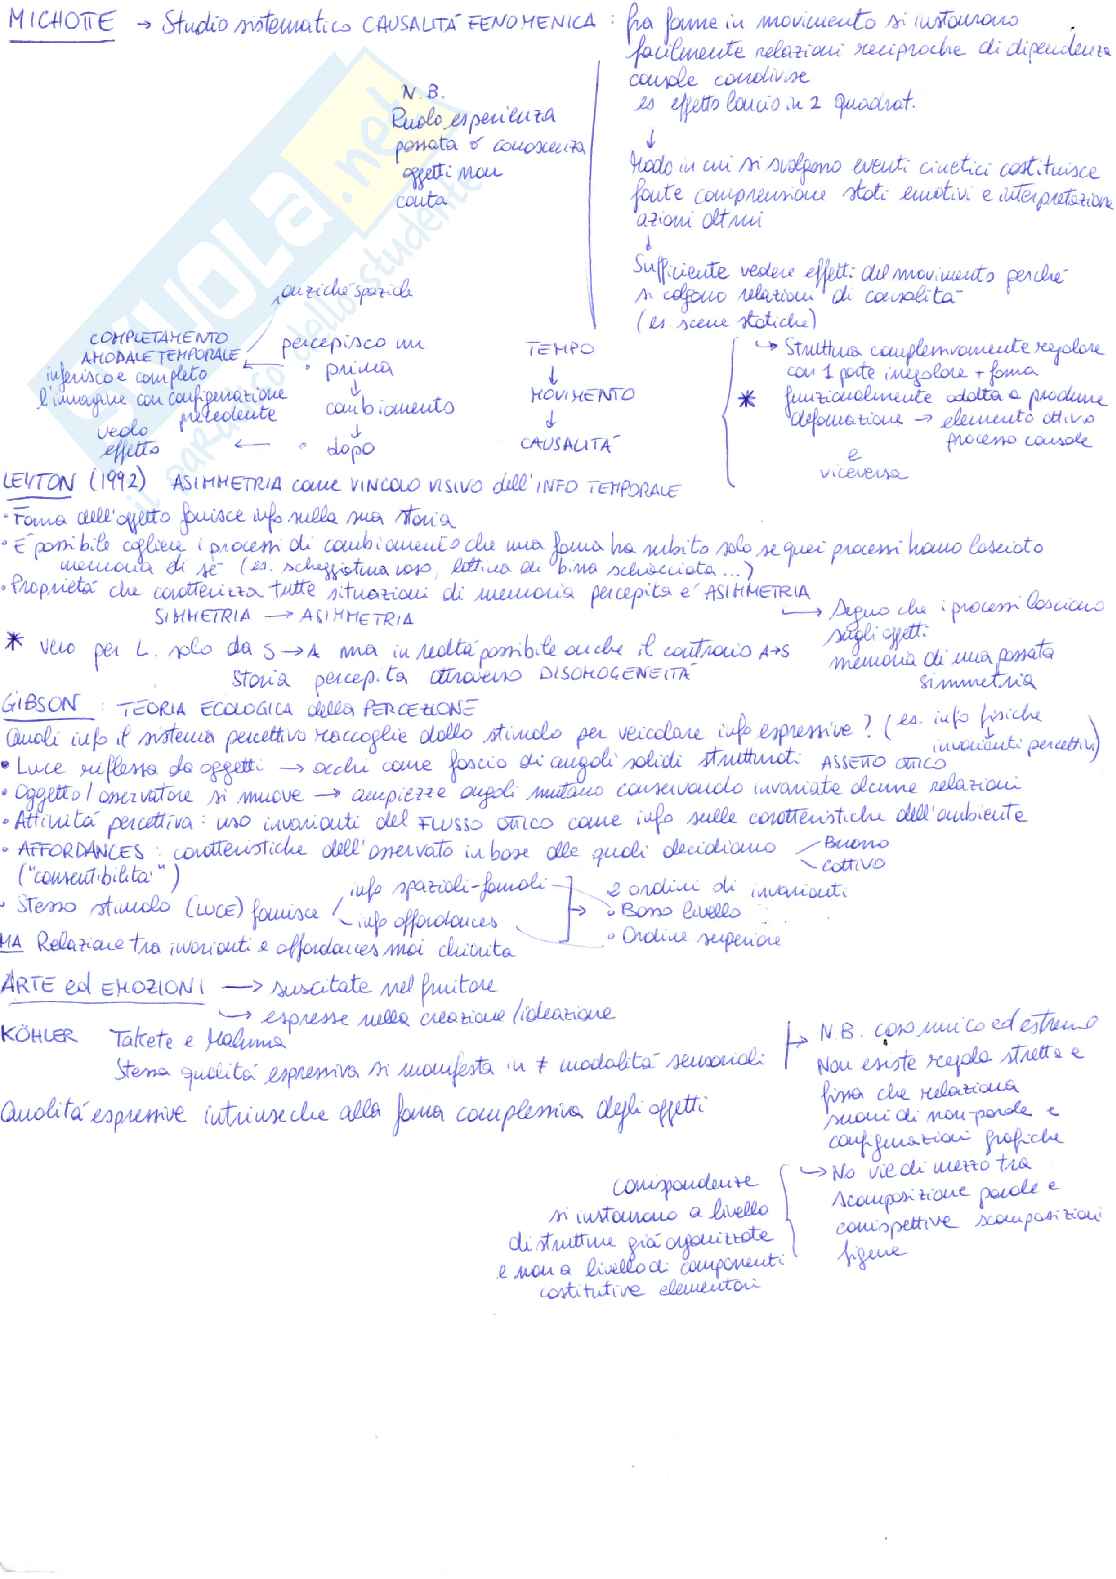 MICHOTTE → Studio sistematico CAUSALITÁ FENOMENICA : fra forme in movimento si instaurano
facilmente relazioni reciproche di dipendenza
causale condivise
es effetto lancio in 2 quadrat.
↓
Modo in cui si svolgono eventi cinetici costituisce
fonte comprensione stati emotivi e interpretazione
azioni altrui
↓
Sufficiente vedere effetti del movimento perché
si colgono relazioni di causalità
(es. scene statiche)
N.B.
Ruolo esperienza
passata o conoscenza
oggetti non
conta
anziché spaziale
COMPLETAMENTO
AMODALE TEMPORALE
inferisco e completo
l'immagine con configurazione
precedente
vedo
effetto
percepisco un
• prima
↓
cambiamento
↓
• dopo
TEMPO
↓
MOVIMENTO
↓
CAUSALITÁ
*
→ Struttura complessivamente regolare
con 1 parte irregolare + forma
funzionalmente adatta a produrre
deformazione → elemento attivo
processo causale
e
viceversa
LEYTON (1992) ASIMMETRIA come VINCOLO VISIVO dell'INFO TEMPORALE
• Forma dell'oggetto fornisce info sulla sua storia
• È possibile cogliere i processi di cambiamento che una forma ha subito solo se quei processi hanno lasciato
memoria di sé (es. scheggiatura vaso, lattina di birra schiacciata...)
• Proprietá che caratterizza tutte situazioni di memoria percepita é ASIMMETRIA
SIMMETRIA → ASIMMETRIA
→ Segno che i processi lasciano
sugli oggetti
memoria di una passata
simmetria
* vero per L. solo da S→A ma in realtá possibile anche il contrario A→S
storia percepita attraverso DISOMOGENEITÁ
GIBSON : TEORIA ECOLOGICA della PERCEZIONE
Quali info il sistema percettivo raccoglie dallo stimolo per veicolare info espressive? (es. info fisiche
↓
invarianti percettivi)
• Luce riflessa da oggetti → occhi come fascio di angoli solidi strutturati ASSETTO OTTICO
• Oggetto/osservatore si muove → ampiezze angoli mutano conservando invariate alcune relazioni
• Attivitá percettiva: uso invarianti del FLUSSO OTTICO come info sulle caratteristiche dell'ambiente
• AFFORDANCES : caratteristiche dell'osservato in base alle quali decidiamo
Buono
cattivo
("consentibilitá")
• Stesso stimolo (LUCE) fornisce
info spaziali-formali
info affordances
2 ordini di invarianti
• Basso livello
• Ordine superiore
MA Relazione tra invarianti e affordances mai chiarita
ARTE ed EMOZIONI → suscitate nel fruitore
→ espresse nella creazione/ideazione
KÖHLER Takete e Maluma
Stessa qualitá espressiva si manifesta in ≠ modalitá sensoriali
N.B. caso unico ed estremo
Non esiste regola stretta e
fissa che relaziona
suoni di non-parole e
configurazioni grafiche
Qualitá espressive intrinseche alla forma complessiva degli oggetti
→ No vie di mezzo tra
scomposizione parole e
corrispettive scomposizioni
figure
corrispondenze
si instaurano a livello
di strutture giá organizzate
e non a livello di componenti
costitutive elementari
SKUOLA.net
il paradiso dello studente